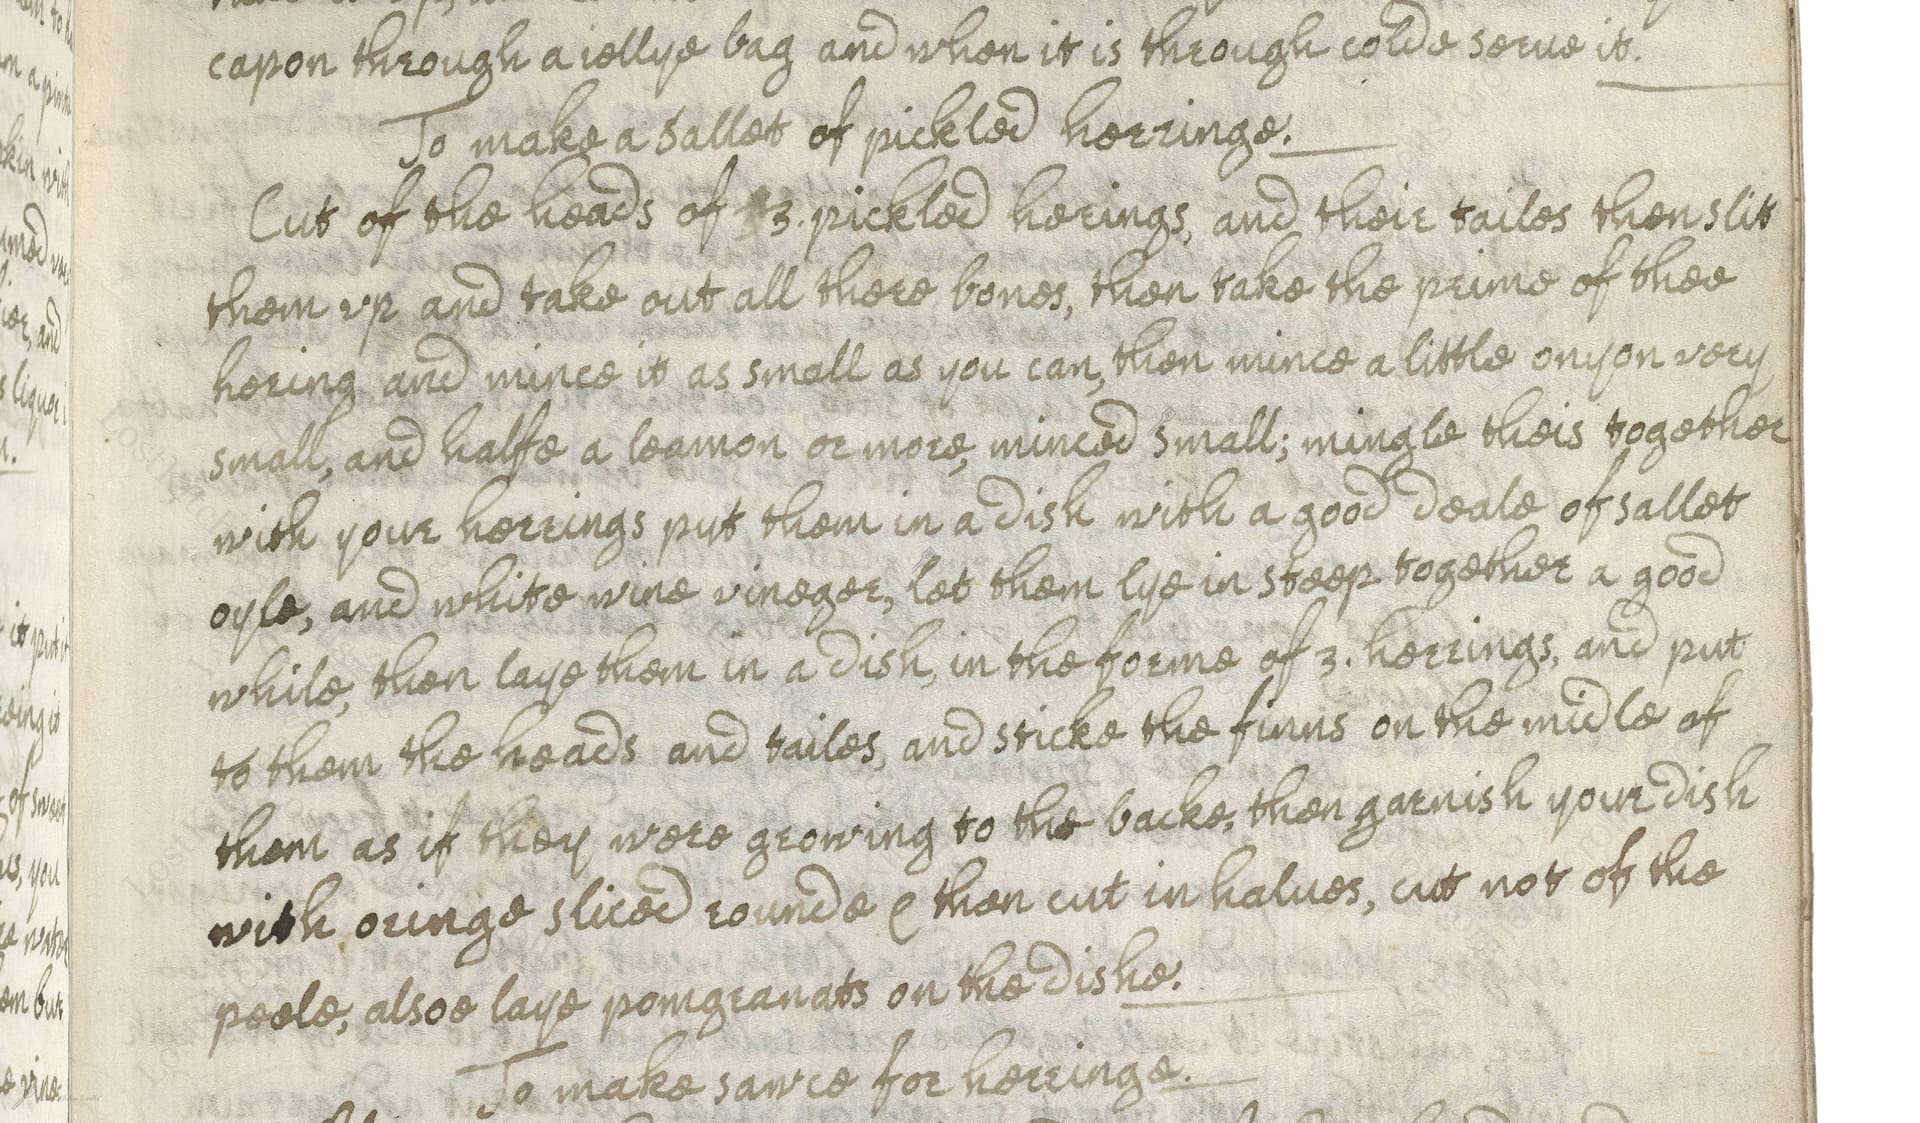 capon through a iellye bag and when it is through colde serue it.
To make a sallet of pickled herringe.
Cut of the heads of 3. pickled herings, and their tailes then slit
them vp and take out all there bones, then take the prime of thee
hering and mince it as small as you can, then mince a little onyon very
small, and halfe a leamon or more, minced small; mingle theis together
with your herrings put them in a dish with a good deale of sallet
oyle, and white wine vineger, let them lye in steep together a good
while, then laye them in a dish, in the forme of 3. herrings, and put
to them the heads and tailes, and sticke the finns on the midle of
them as if they were growing to the backe, then garnish your dish
with oringe sliced rounde & then cut in halues, cut not of the
peele, alsoe laye pomgranats on the dishe.
To make sawce for herringe.